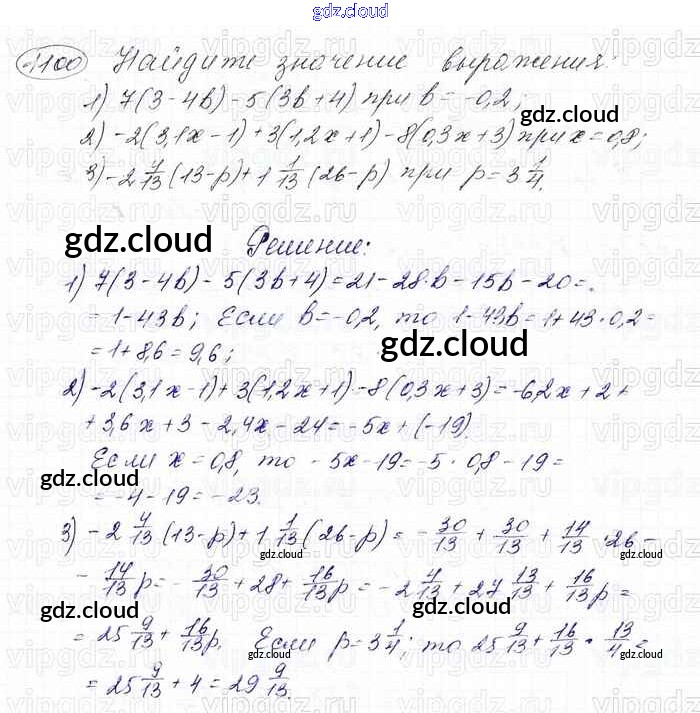 gdz.cloud
1100 Найдите значение выражения:
1) 7(3-4b)-5(3b+4) при b=-0,2;
gdz.cloud
2) -2(3,1x-1)+3(1,2x+1)-8(0,3x+3) при x=0,8;
3) -2 4/13 (13-p)+1 1/13 (26-p) при p=3 1/4.
gdz.cloud
Решение:
1) 7(3-4b)-5(3b+4)=21-28·b-15b-20=
=1-43b; Если b=-0,2, то 1-43b=1+43·0,2=
=1+8,6=9,6;
gdz.cloud
2) -2(3,1x-1)+3(1,2x+1)-8(0,3x+3)=-6,2x+2+
+3,6x+3-2,4x-24=-5x+(-19)
Если x=0,8, то -5x-19=-5·0,8-19=
gdz.cloud
=-4-19=-23.
gdz.cloud
3) -2 4/13 (13-p)+1 1/13 (26-p)=-30/13+30/13+14/13·26-
gdz.cloud
gdz.cloud
-14/13p=-30/13+28+16/13p=-2 4/13+27 13/13+16/13p=
gdz.cloud
gdz.cloud
=25 9/13+16/13p. Если p=3 1/4; то 25 9/13+16/13·13/4=
gdz.cloud
gdz.cloud
=25 9/13+4=29 9/13.
gdz.cloud